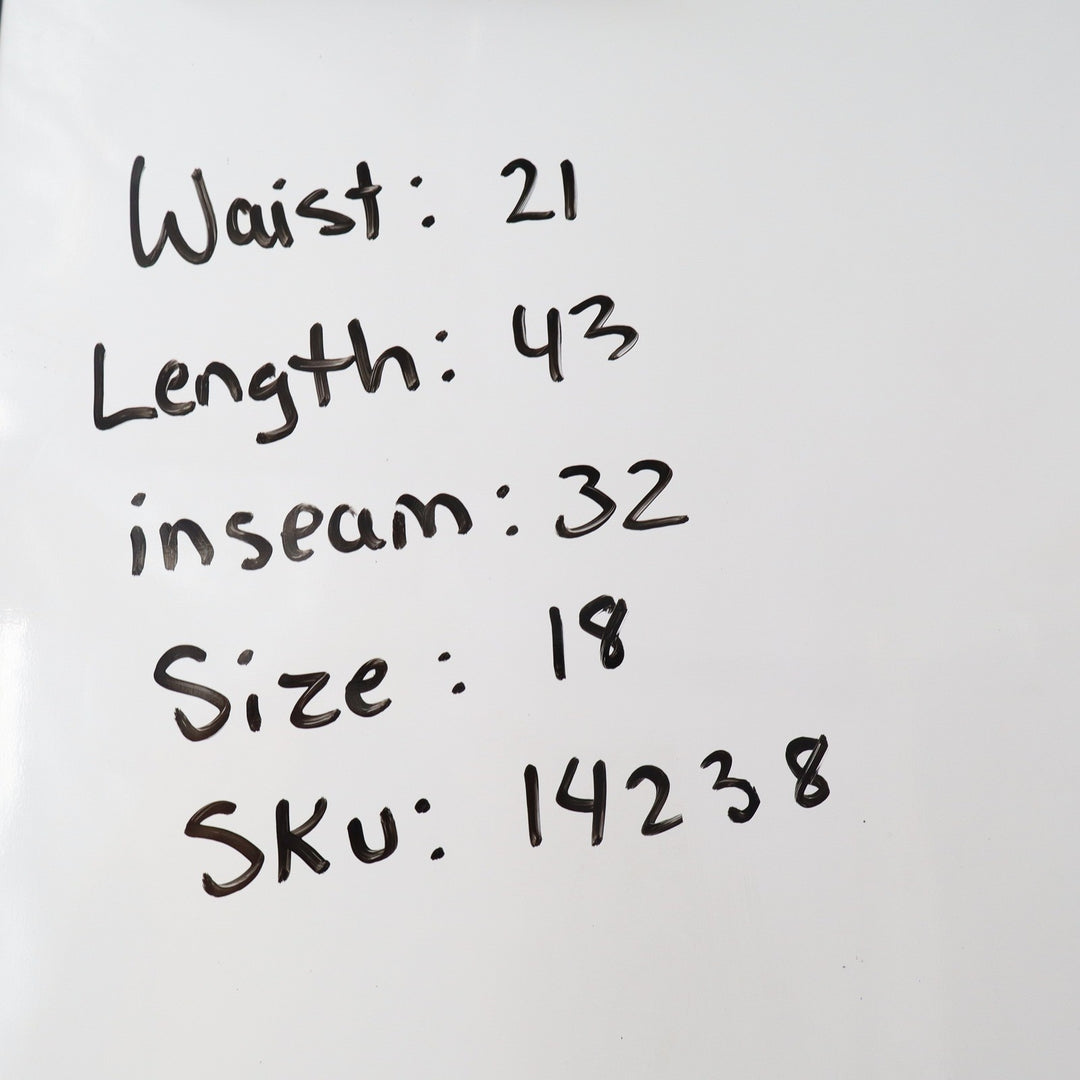 Waist: 21
Length: 43
inseam: 32
Size: 18
SKU: 14238